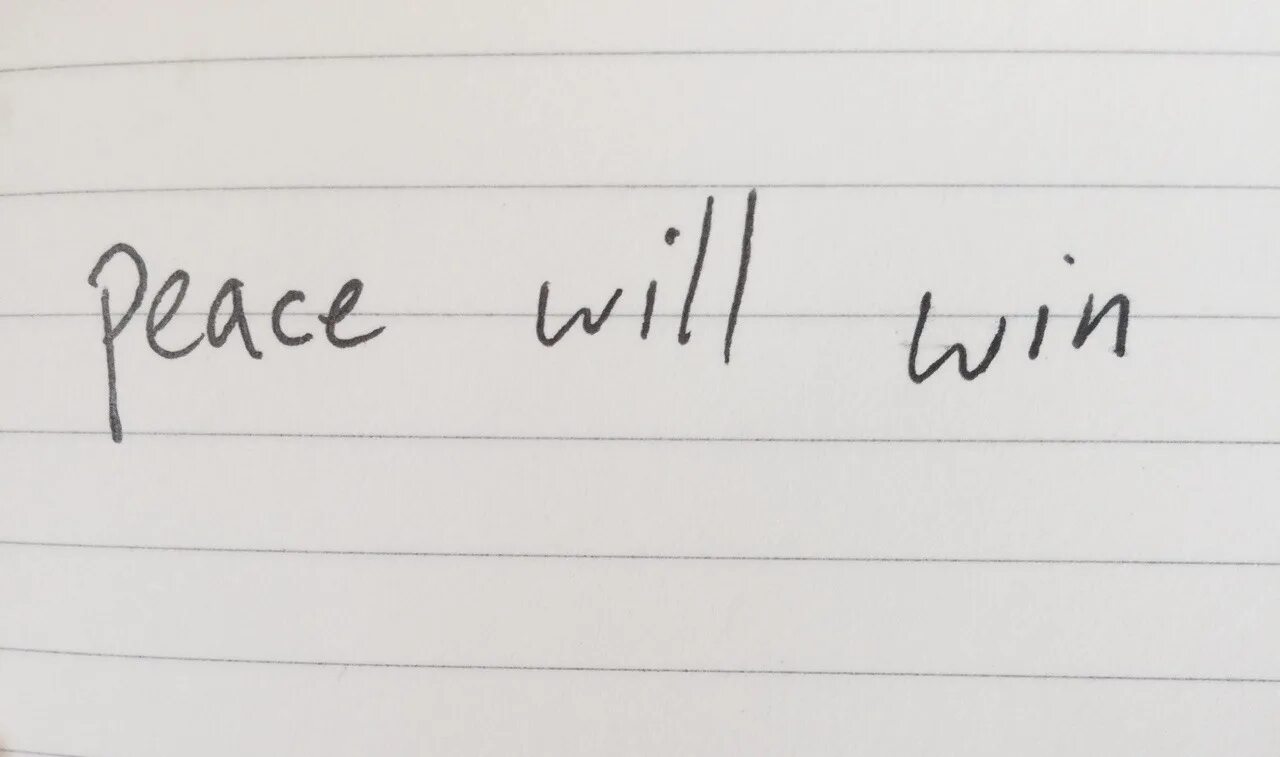 peace will win